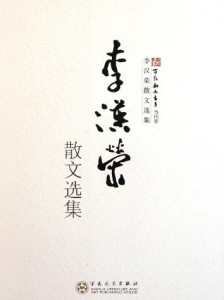 李漢榮
散文选集
李汉荣散文选集
百花文艺出版社
BAIHUA LITERATURE AND
ART PUBLISHING HOUSE